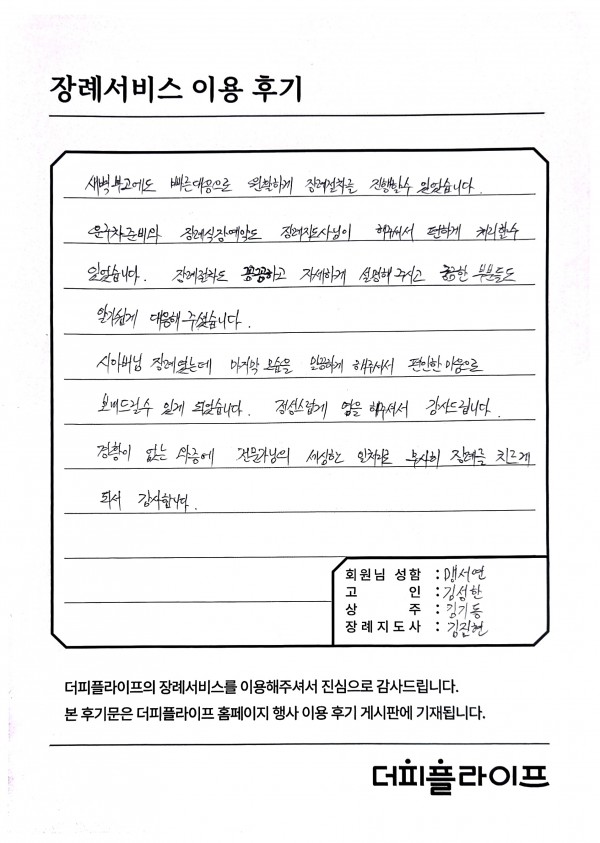 장례서비스 이용 후기
새벽 부고에도 빠른대응으로 원활하게 장례절차를 진행할수 있었습니다.
운구차준비와 장례식장예약도 장례지도사님이 해주셔서 편하게 처리할수
있었습니다. 장례절차도 꼼꼼하고 자세하게 설명해 주시고 궁금한 부분들도
알기쉽게 대응해 주셨습니다.
시아버님 장례였는데 마지막 모습을 깔끔하게 해주셔서 편안한 마음으로
보내드릴수 있게 되었습니다. 정성스럽게 염을 해주셔서 감사드립니다.
경황이 없는 와중에 전문가님의 세심한 일처리로 무사히 장례를 치르게
되서 감사합니다.
회원님 성함 : 맹서연
고 인 : 김섬한
상 주 : 김기동
장례지도사 : 김진현
더피플라이프의 장례서비스를 이용해주셔서 진심으로 감사드립니다.
본 후기문은 더피플라이프 홈페이지 행사 이용 후기 게시판에 기재됩니다.
더피플라이프